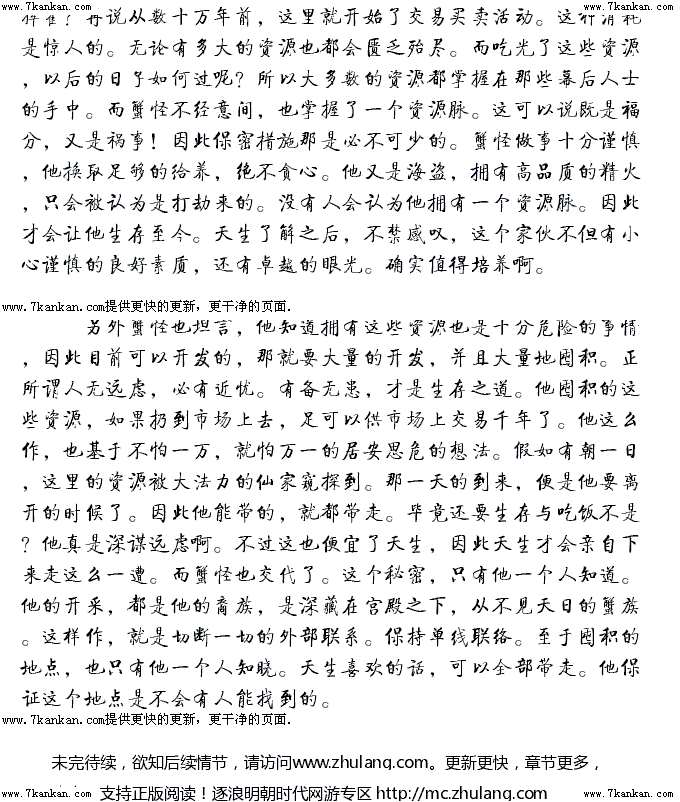 www.7kankan.com www.7kankan.com
再说从数十万年前，这里就开始了交易买卖活动。这种消耗
是惊人的。无论有多大的资源也都会匮乏殆尽。而吃光了这些资源
，以后的日子如何过呢？所以大多数的资源都掌握在那些幕后人士
的手中。而蟹怪不经意间，也掌握了一个资源脉。这可以说既是福
分，又是祸事！因此保密措施那是必不可少的。蟹怪做事十分谨慎
，他换取足够的给养，绝不贪心。他又是海盗，拥有高品质的精火
，只会被认为是打劫来的。没有人会认为他拥有一个资源脉。因此
才会让他生存至今。天生了解之后，不禁感叹，这个家伙不但有小
心谨慎的良好素质，还有卓越的眼光。确实值得培养啊。
www.7kankan.com提供更快的更新，更干净的页面.
另外蟹怪也坦言，他知道拥有这些资源也是十分危险的事情
，因此目前可以开发的，那就要大量的开发，并且大量地囤积。正
所谓人无远虑，必有近忧。有备无患，才是生存之道。他囤积的这
些资源，如果扔到市场上去，足可以供市场上交易千年了。他这么
作，也基于不怕一万，就怕万一的居安思危的想法。假如有朝一日
，这里的资源被大法力的仙家窥探到。那一天的到来，便是他要离
开的时候了。因此他能带的，就都带走。毕竟还要生存与吃饭不是
？他真是深谋远虑啊。不过这也便宜了天生，因此天生才会亲自下
来走这么一遭。而蟹怪也交代了。这个秘密，只有他一个人知道。
他的开采，都是他的裔族，是深藏在宫殿之下，从不见天日的蟹族
。这样作，就是切断一切的外部联系。保持单线联络。至于囤积的
地点，也只有他一个人知晓。天生喜欢的话，可以全部带走。他保
证这个地点是不会有人能找到的。
www.7kankan.com提供更快的更新，更干净的页面.
未完待续，欲知后续情节，请访问www.zhulang.com。更新更快，章节更多，
www.7kankan.com 支持正版阅读！逐浪明朝时代网游专区 http://mc.zhulang.com www.7kankan.com